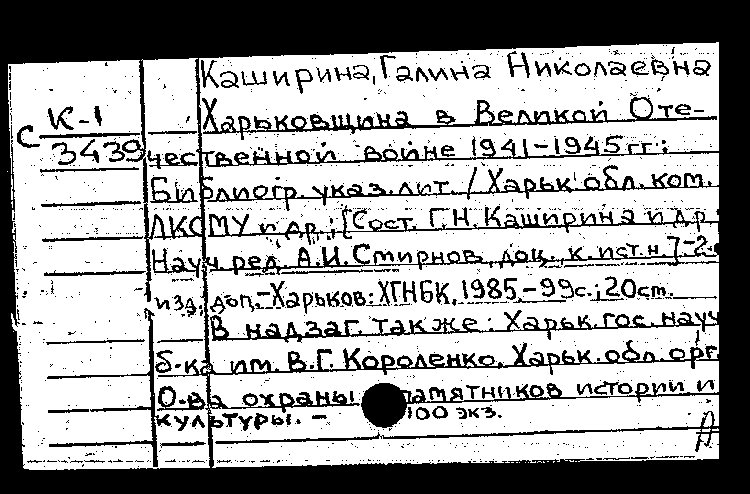 Каширина, Галина Николаевна
К-1
Харьковщина в Великой Оте-
С
3439
чественной войне 1941-1945 гг:
Библиогр. указ. лит. / Харьк. обл. ком.
ЛКСМУ и др.; [Сост. Г.Н. Каширина и др.
Науч. ред. А.И. Смирнов, доц., к. ист. н.]-2-е
изд., доп.-Харьков: ХГНБК, 1985.-99с.; 20см.
В надзаг. также: Харьк. гос. науч
б-ка им. В.Г. Короленко, Харьк. обл. орг.
О-ва охраны памятников истории и
культуры. - 100 экз.